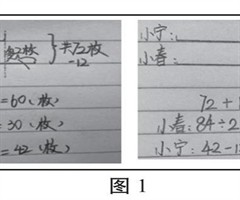 共72枚
-12
=60(枚)
=30(枚)
=42(枚)
小宁:
小春:
72+1
小春:84÷2
小宁:42-1
图 1